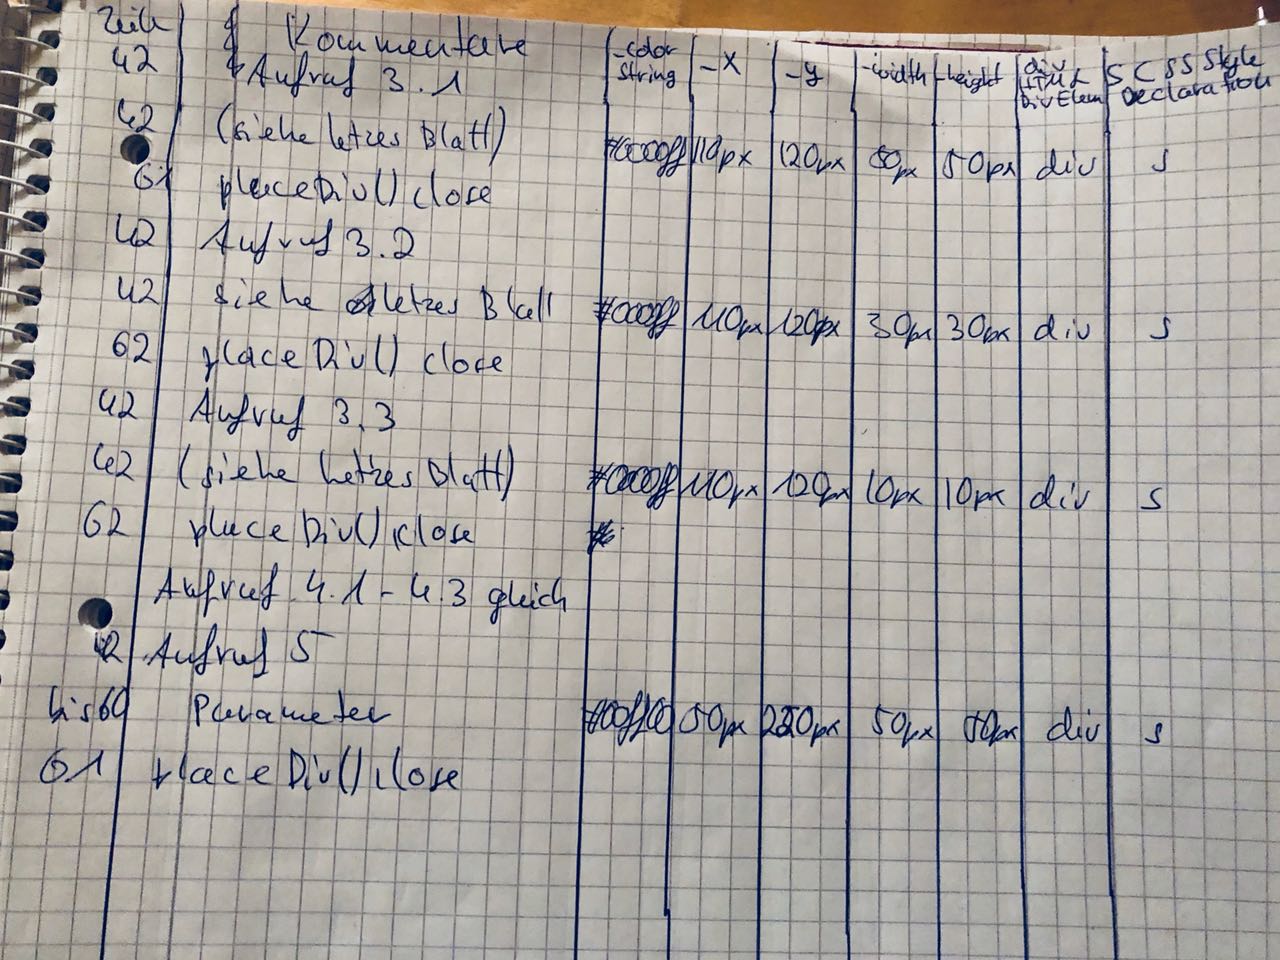 Zeile Kommentare _color String _x _y _width _height div HTML DivElem s CSSStyle Declaration
42 Aufruf 3.1
42 (siehe letzes Blatt) #0000ff 110px 120px 50px 50px div s
61 placeDiv() close
42 Aufruf 3.2
42 siehe letzes Blatt #0000ff 110px 120px 30px 30px div s
62 placeDiv() close
42 Aufruf 3.3
42 (siehe letzes Blatt) #0000ff 110px 120px 10px 10px div s
62 placeDiv() close
Aufruf 4.1 - 4.3 gleich
42 Aufruf 5
bis 60 Parameter #00ff00 50px 220px 50px 50px div s
61 placeDiv() close